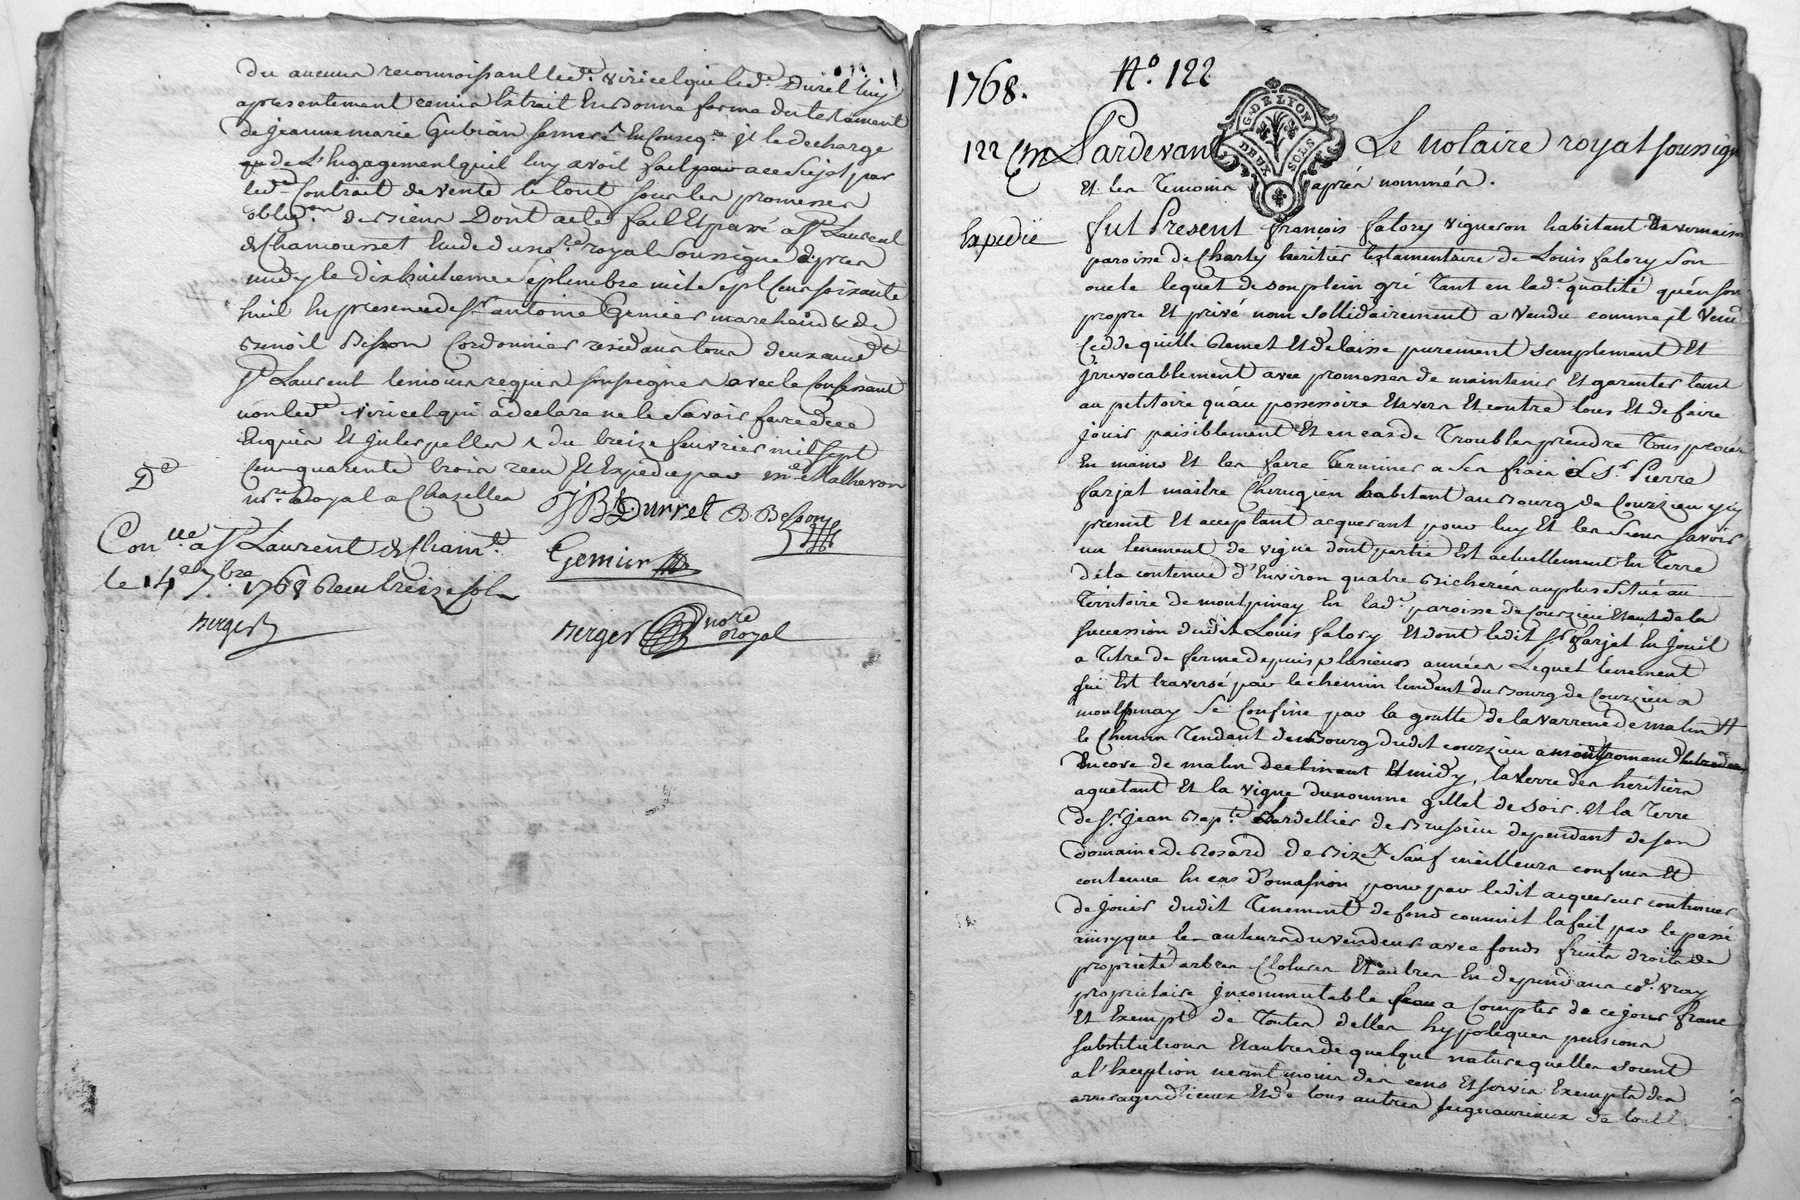 du aucuns reconnoissant led.t Viricel que led.t Durel luy
a presentement remis Extrait En bonne forme du testament
de jeanne marie Gubian En Conseq.ce Il le decharge
de L'Engagement quil luy avoit fait a ce Sujet par
led.t Contrait de vente le tout sous les promesses
oblig.on de Biens Dont acte fait Et passé a S.t Laurent
de Chamousset Etude du no.re royal Soussigné apres
midy le dixhuitieme Septembre mil Sept Cent soixante
huit En presence de S.r antoine Genier marchand & de
Benoit Besson Cordonnier residans tous deux aud.t
S.t Laurent temoins requis soussignes avec le Confessant
non led.t Viricel qui a declaré ne le Savoir faire de ce
Enquis Et Interpellés du treize fevrier mil sept
Cent quarente trois receu Et Expedié par m.e Malhevon
no.re Royal a Chazelles
D.t
J B Durret B Besson
Con.lle a S.t Laurent de Cham.t
le 14 7.bre 1768 Receu treize sols
Genier
Berger
Berger no.re royal
1768. N.o 122
122
G. DE LYON
DEUX SOLS
Pardevant Le Notaire royal soussigné
Et les Temoins après nommés.
Expedié
fut Present françois fatory vigneron habitant a vernaison
paroisse de Charly héritier testamentaire de Louis fatory Son
oncle lequel de son plein gré Tant en lad.e qualité qu'en son
propre Et privé nom sollidairement a vendu comme il vend
Cedde quitte Remet Et delaisse purement simplement Et
Irrevocablement avec promesses de maintenir Et garentir tant
au petitoire qu'au possessoire Envers Et contre tous Et de faire
jouir paisiblement Et en cas de Troubles prendre Tous procés
En mains Et les faire Terminer a Ses frais à S.r Pierre
farjat maitre Chirugien habitant au Bourg de Courzieu ycy
present Et acceptant acquerant pour luy Et les siens savoir
un tenement de vigne dont partie Est actuellement En Terre
de la contenue d'Environ quatre Bicherées au plus situé au
Territoire de montpinay En lad.e paroisse de Courzieu Etant de la
succession dudit Louis fatory Et dont ledit S.r farjat En jouit
a Titre de ferme depuis plusieurs années Lequel tenement
qui Est traversé par le chemin tendant du Bourg de Courzieu a
montpinay Se Confine par la goutte de la varrenne de matin
le Chemin Tendant du Bourg dudit courzieu a montromand
Encore de matin declinant Et midy, la terre des héritiers
aquetant Et la vigne du nommé gillet de soir. Et la Terre
de S.r jean Bap.te Bardellier de Brussieu dependant de son
domaine de Rosard de Bize Sauf meilleurs confins Et
contenue En cas d'omission pour par ledit acquereur continuer
de jouir dudit Tenement de fond comme il la fait par le passé
ainsy que les auteurs du vendeur avec fonds fruits droits de
propriété arbres Clotures Et autres En dependans co.e vray
propriétaire Incommutable a Compter de ce jour franc
Et Exempt de Toutes dettes hypoteques pensions
substitutions Et autres de quelque nature quelles soient
a l'Exception neantmoins des cens Et servis Exempts des
arrerages d'iceux Et de tous autres seigneuriaux de tout